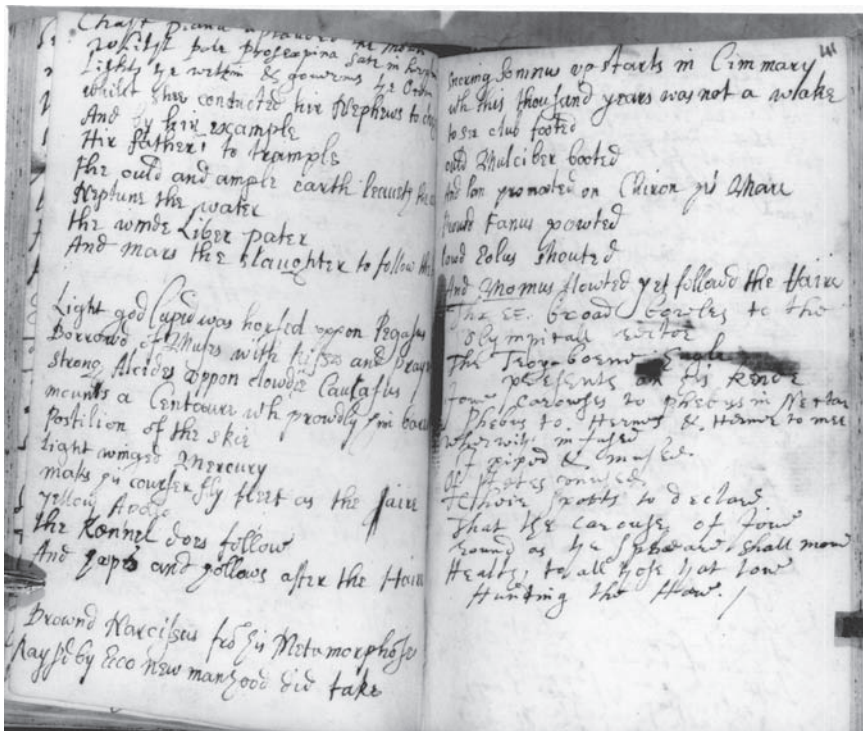 Whilst pale proserpina sate in
Lights ye
whilst shee conducted hir Nephews to
And by hir example
Hir father's to trample
the ould and ample earth
Neptune the water
the winde Liber pater
And mars the slaughter to follow the
Light god Cupid was horsed uppon Pegasus
Borrowd of Muses with kisses and
Strong Alcides uppon clowdie Caucasus
mounts a Centaure wh prowdly him
Postilion of the skie
Light winged Mercury
maks his courser fly fleet as the
yellow
the Kennel does follow
And and hollows after the Hair
Drownd Narcissus frō his Metamorphōse
Raysd by Eco new manhood did take
41
Snoring Somnus upstarts in Cimmary
wh this thousand years was not a wake
to see club footed
ould Mulciber booted
And pan promoted on Chiron his Mare
Fanus powted
lowd Eolus shouted
And Momus flowted yet followd the Haire
Three broad bowles to the
olympicall rector
The Troy-borne Eagle
presents on his knee
Jove carowses to phebus in Nectar
Phebus to Hermes & Hermes to mee
wherwith infused
I piped & mused
to declare
That the carouse of Jove
round as the spheare shall move
Health to all those that love
Hunting the Hare. /